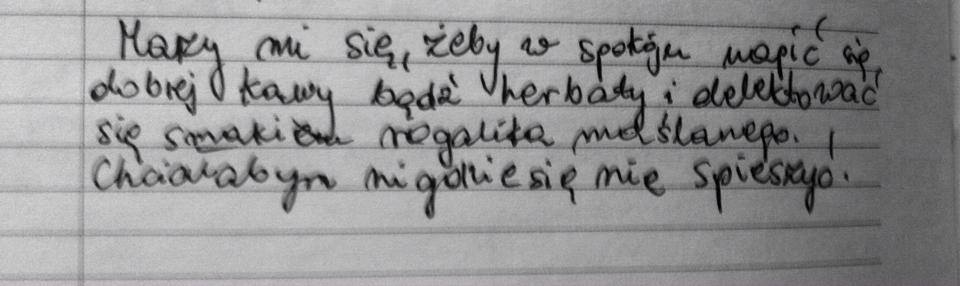 Marzy mi się, żeby w spokoju napić się
dobrej kawy bądź herbaty i delektować
się smakiem rogalika maślanego.
Chciałabym nigdzie się nie spieszyć.